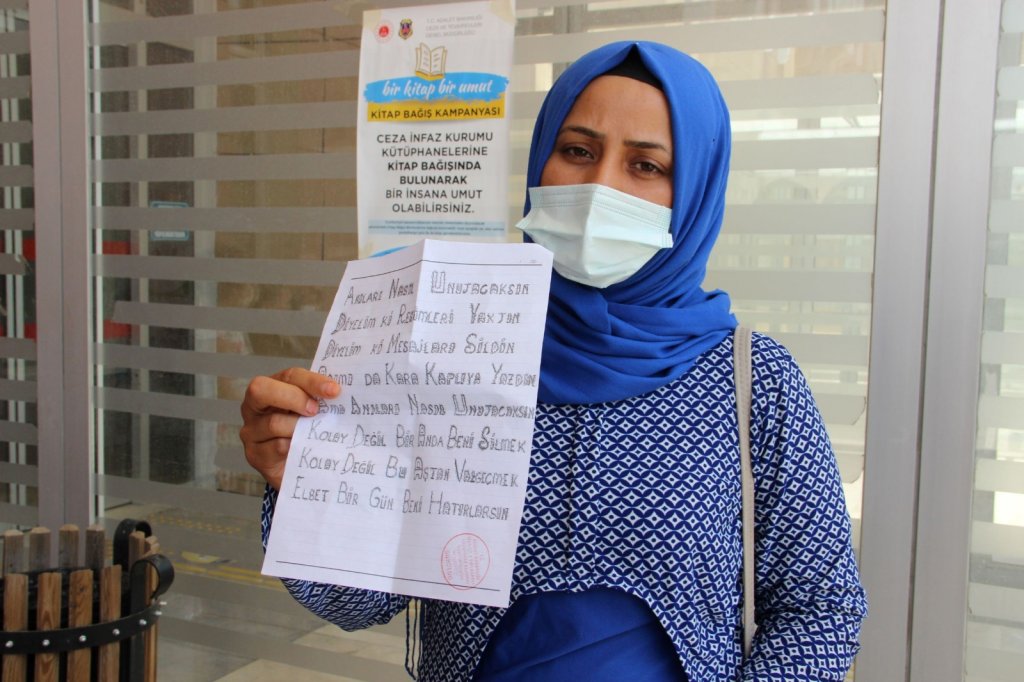 T.C. ADALET BAKANLIĞI
CEZA VE TEVKİFEVLERİ
GENEL MÜDÜRLÜĞÜ
bir kitap bir umut
KİTAP BAĞIŞ KAMPANYASI
CEZA İNFAZ KURUMU
KÜTÜPHANELERİNE
KİTAP BAĞIŞINDA
BULUNARAK
BİR İNSANA UMUT
OLABİLİRSİNİZ.
ANILARI NASIL UNUJACAKSIN
DİYELİM Kİ RESİMLERİ YAKJIN
DİYELİM Kİ MESAJLARI SİLDİN
DA KARA KAPLIYA YAZDIN
AMA ANILARI NASIL UNUJACAKSIN
KOLAY DEĞİL BİR ANDA BENİ SİLMEK
KOLAY DEĞİL BU AŞTAN VAZGEÇMEK
ELBET BİR GÜN BENİ HATIRLARSUN